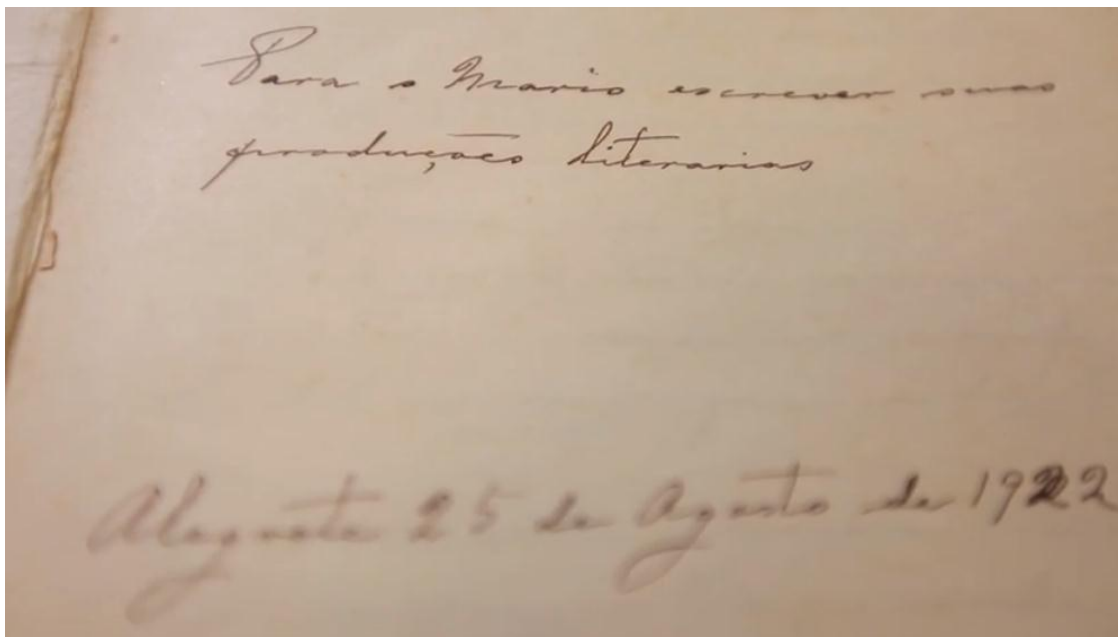 Para o Mario escrever suas
producções literarias
Alegrete 25 de Agosto de 1922